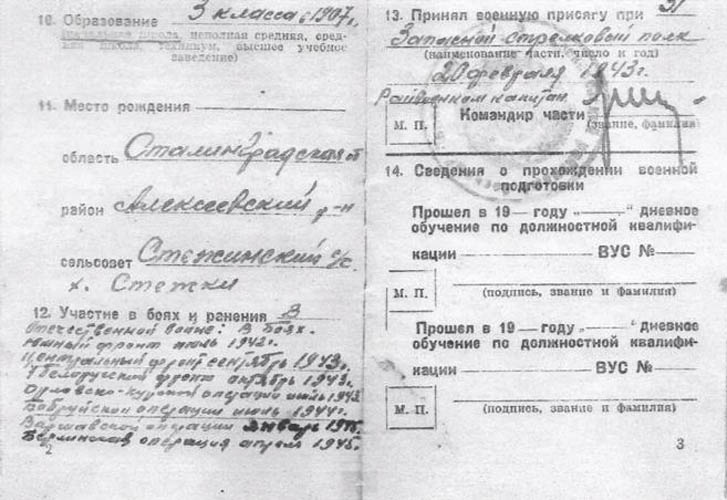 10. Образование 3 класса в 1907 г.
(начальная школа, неполная средняя, сред-
няя школа, техникум, высшее учебное
заведение)
11. Место рождения
область Сталинградская
район Алексеевский р-н
сельсовет Стежинский с/с.
х. Стежки
12. Участие в боях и ранения В
Отечественной войне: В боях.
Южный фронт июль 1942 г.
Центральный фронт сентябрь 1943 г.
1 Белорусский фронт октябрь 1943 г.
Орловско-курской операции июль 1943
Бобруйской операции июнь 1944 г.
Варшавской операции январь 1945
Берлинская операция апрель 1945 г.
2
13. Принял военную присягу при 31
Запасной стрелковый полк
(наименование части, число и год)
20 февраля 1943 г.
Райвоенком капитан
М. П.
Командир части
(звание, фамилия)
14. Сведения о прохождении военной
подготовки
Прошел в 19— году „——“ дневное
обучение по должностной квалифи-
кации ——— ВУС № ——
М. П.
(подпись, звание и фамилия)
Прошел в 19— году „——“ дневное
обучение по должностной квалифи-
кации ——— ВУС № ——
М. П.
(подпись, звание и фамилия)
3